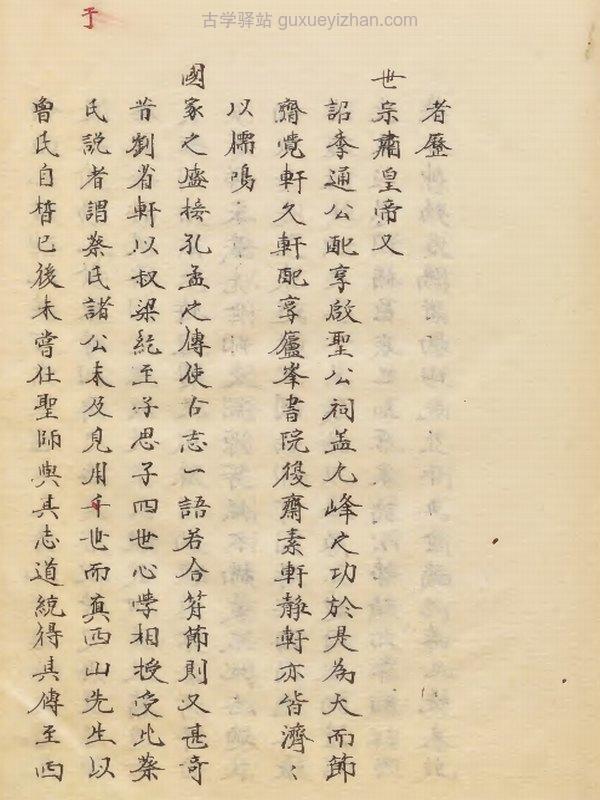 古学驿站 guxueyizhan.com
于
者歷
世宗肅皇帝又
詔季通公配享啟聖公祠蓋九峰之功於是為大而節
齋覺軒久軒配享廬峯書院後齋素軒靜軒亦皆濟〻
以儒鳴
國家之盛接孔孟之傳使古志一語若合符節則又甚奇
昔劉省軒以叔梁紇至子思子四世心學相授受比蔡
氏說者謂蔡氏諸公未及見用于世而真西山先生以
魯氏自晳已後未嘗仕聖師與其志道統得其傳至西